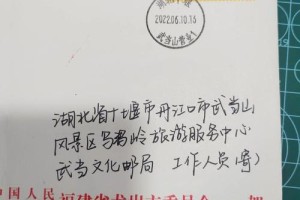 2022.06.10.16
武当山营业
湖北省十堰市丹江口市武当山
风景区乌鸦岭旅游服务中心
武当文化邮局 工作人员(寄)
中国人民